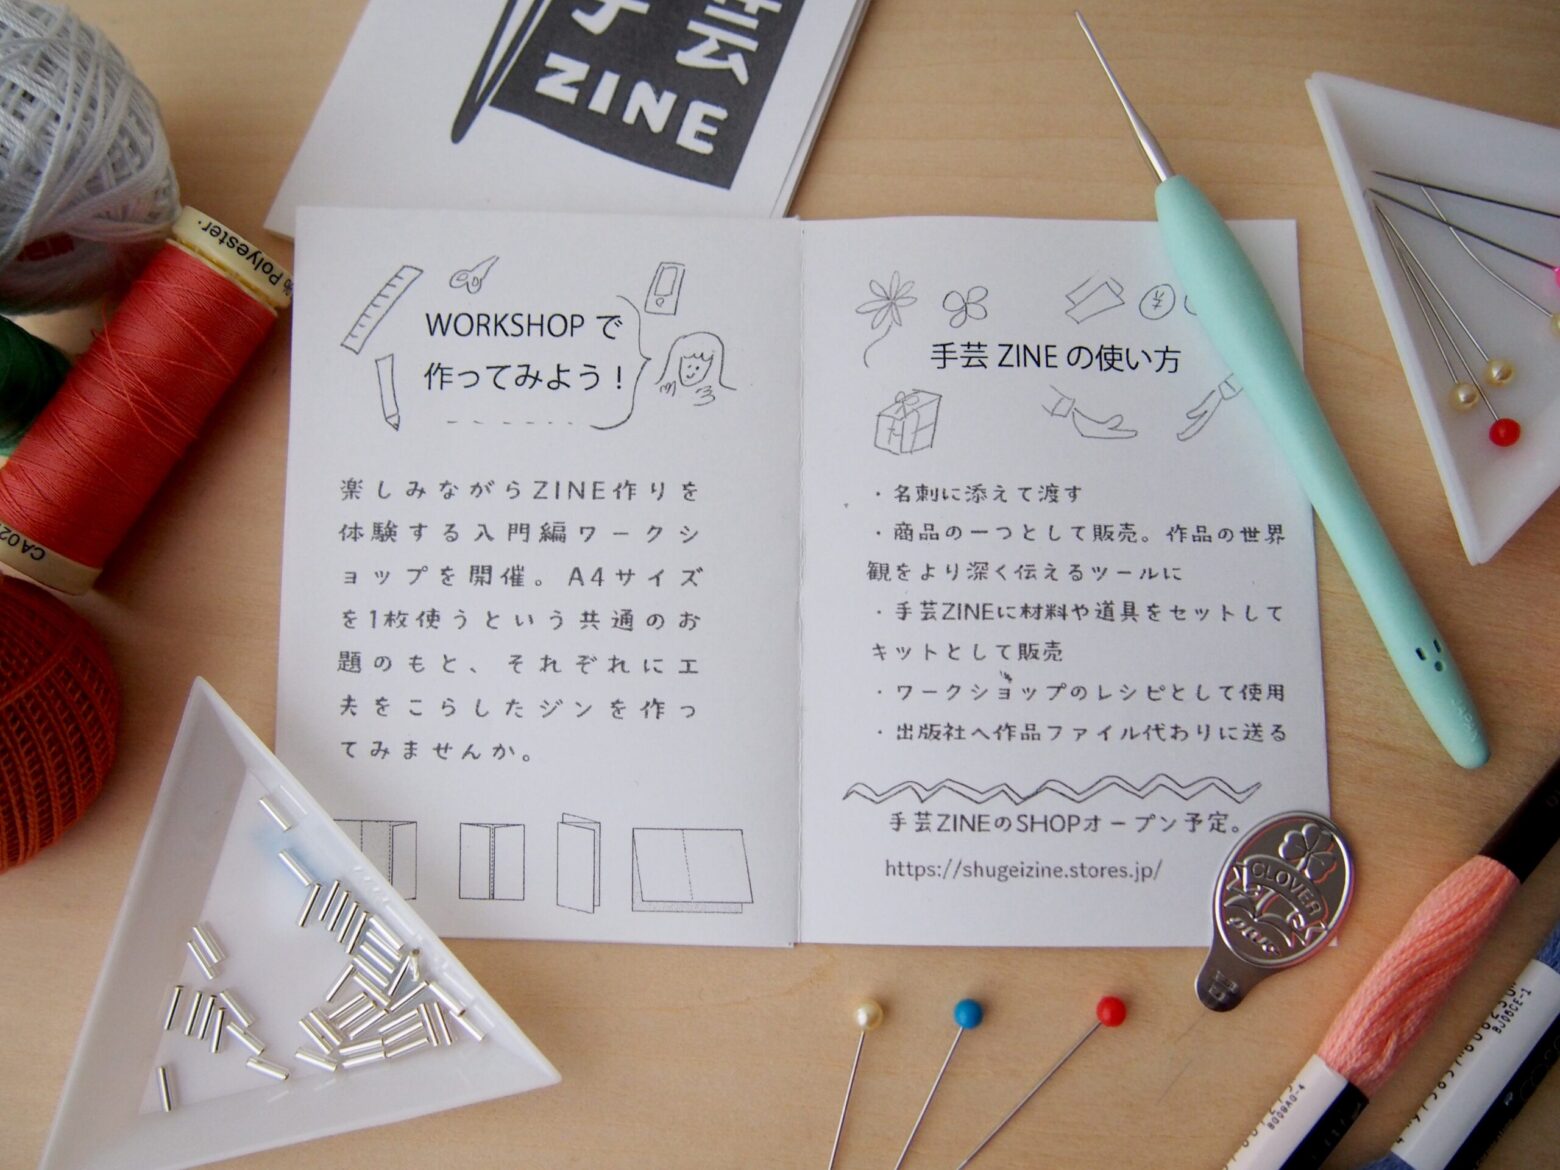 芸
ZINE
Polyester.
WORKSHOP で
作ってみよう！
楽しみながらZINE作りを
体験する入門編ワークシ
ョップを開催。A4サイズ
を1枚使うという共通のお
題のもと、それぞれに工
夫をこらしたジンを作っ
てみませんか。
手芸 ZINE の使い方
・名刺に添えて渡す
・商品の一つとして販売。作品の世界
観をより深く伝えるツールに
・手芸ZINEに材料や道具をセットして
キットとして販売
・ワークショップのレシピとして使用
・出版社へ作品ファイル代わりに送る
手芸ZINEのSHOPオープン予定。
https://shugeizine.stores.jp/
CLOVER
plus